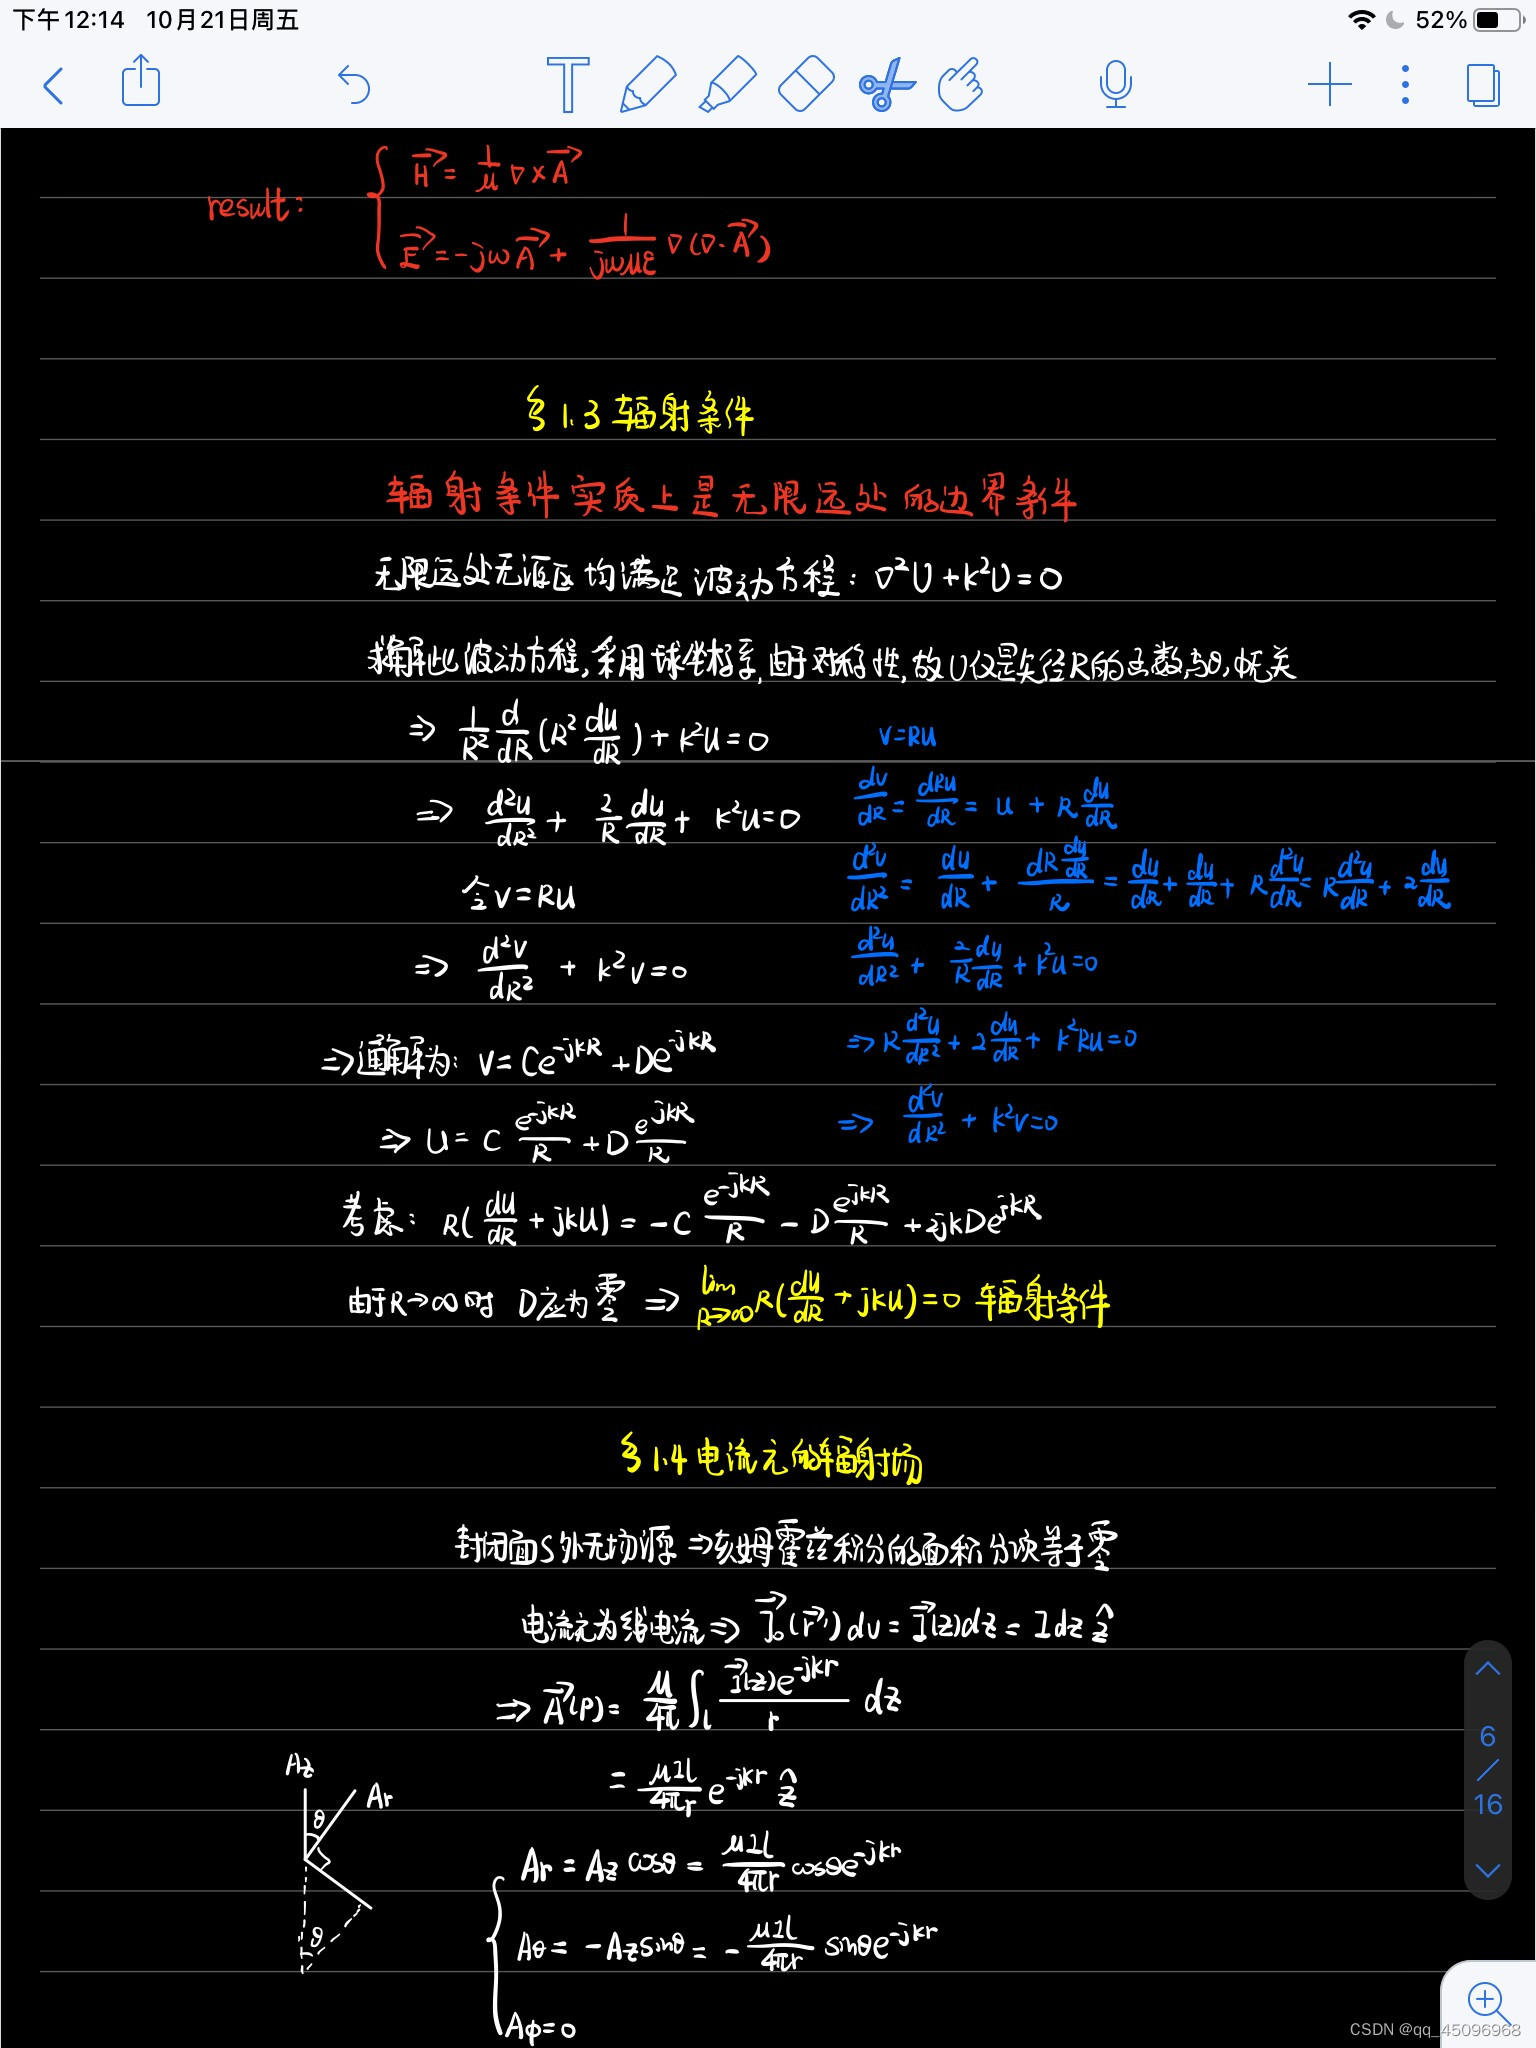 下午12:14 10月21日周五 52%
result:
H⃗ = 1/μ ∇×A⃗
E⃗ = -jωA⃗ + 1/(jωμε) ∇(∇·A⃗)
§1.3 辐射条件
辐射条件实质上是无限远处的边界条件
无限远处无源区均满足波动方程: ∇²U+k²U=0
求解此波动方程,采用球坐标系,由于对称性,故U仅是矢径R的函数,与θ,φ无关
⇒ 1/R² d/dR (R² du/dR) + k²u = 0
v=Ru
⇒ d²u/dR² + 2/R du/dR + k²u=0
dv/dR = dRu/dR = u + R du/dR
令 v=Ru
d²v/dR² = du/dR + (dR du/dR)/R = du/dR + du/dR + R d²u/dR = R d²u/dR + 2 du/dR
⇒ d²v/dR² + k²v=0
d²u/dR² + 2/R du/dR + k²u=0
⇒通解为: v=Ce^-jkR + De^-jkR
⇒ R d²u/dR² + 2 du/dR + k²Ru=0
⇒ u = C e^-jkR/R + D e^jkR/R
⇒ d²v/dR² + k²v=0
考虑: R(du/dR + jku) = -C e^-jkR/R - D e^jkR/R + 2jkDe^jkR
由于R→∞时 D应为零 ⇒ lim R→∞ R(du/dR + jku)=0 辐射条件
§1.4 电流元的辐射场
封闭面S外无场源 ⇒ 亥姆霍兹积分的面积分项等于零
电流元为线电流 ⇒ J⃗₀(r⃗')dv = I⃗(z)dz = Idz ẑ
⇒ A⃗(P) = μ/4π ∫l I⃗(z)e^-jkr/r dz
= μIl/4πr e^-jkr ẑ
Az
Ar
θ
Ar = Az cosθ = μIl/4πr cosθe^-jkr
Aθ = -Az sinθ = - μIl/4πr sinθe^-jkr
θ
Aφ=0
6
/
16
CSDN @qq_45096968